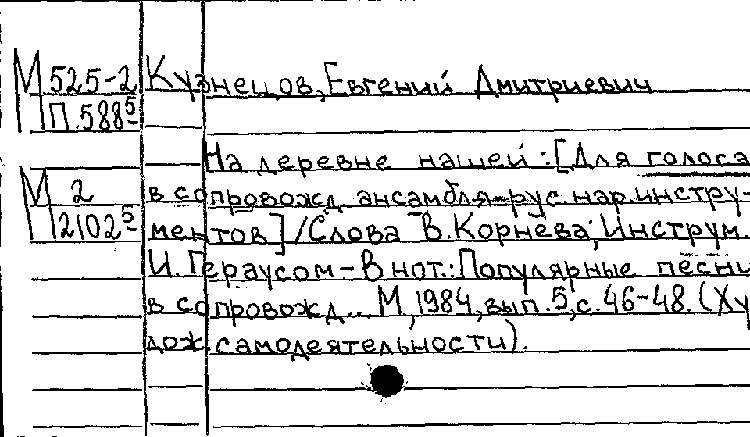 М 525-2 Кузнецов, Евгений Дмитриевич
П.588⁵
На деревне нашей : [Для голоса
М 2 в сопровожд. ансамбля рус. нар. инстру-
2102⁵ ментов] / Слова В. Корнева; Инструм.
И. Гераусом – В нот.: Популярные песни
в сопровожд... М, 1984, вып. 5, с. 46-48. (Ху
дож. самодеятельности).